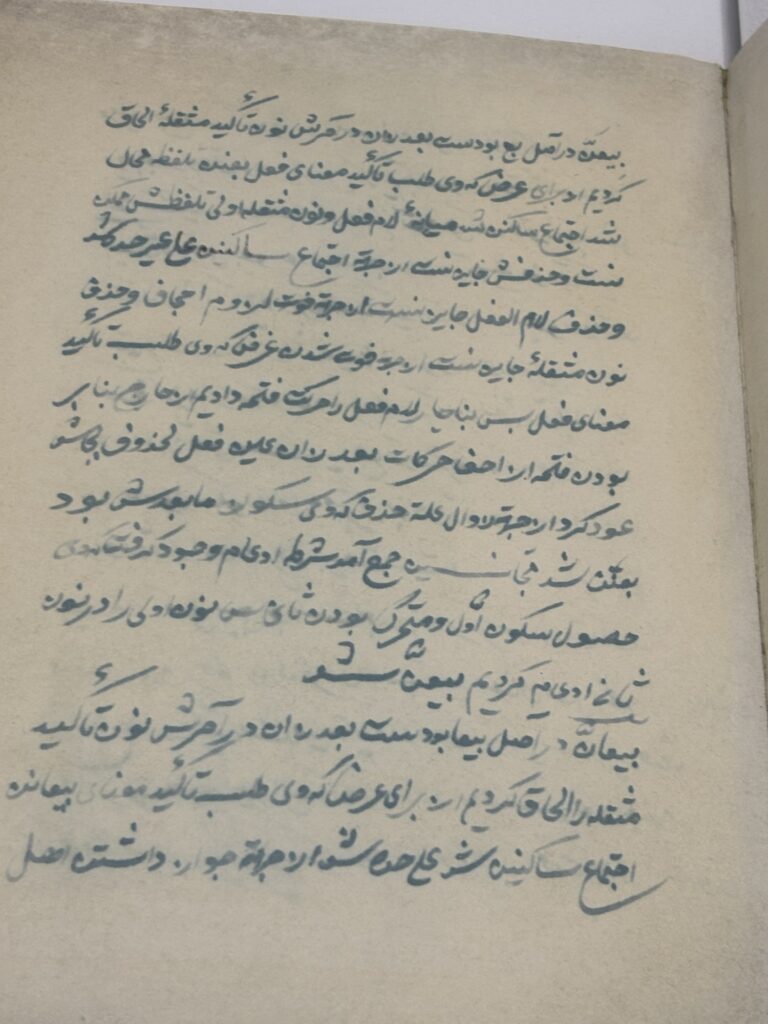 بیعنّ در اصل بع بودست بعد ازان در آخرش نون تأکید مثقلهٔ الحاق
کردیم از برای غرض که وی طلب تأکید معنای فعل بعنده تلفظ محال
شد اجتماع ساکنین شد میانهٔ لام فعل و نون مثقله اولی تلفظش ممکن
نیست و حذفش جایز نیست از جهة اجتماع ساکنین علی غیر حده شد
و حذف لام الفعل جایز نیست از جهة فوت لزوم احجاف و حذف
نون مثقلهٔ جایز نیست از جهة فوت شدن غرض که وی طلب تأکید
معنای فعل پس بناچار لام فعل را حرکت فتحه دادیم بنا بر
بودن فتحه از اخف حرکات بعد ازان عین فعل محذوف
عود کرد از جهة زوال علة حذف که وی سکون مابعدش بود
بیعنن شد متجانسین جمع آمد شرط ادغام وجود گرفت که وی
حصول سکون اول و متحرک بودن ثانی پس نون اولی را در نون
ثانی ادغام کردیم بیعنّ شد
بیعانّ در اصل بیعا بودست بعد ازان در آخرش نون تأکید
مثقله را الحاق کردیم از برای غرض که وی طلب تأکید معنای بیعانده
اجتماع ساکنین شد علی حده شد از جهة جواز داشتن اصل